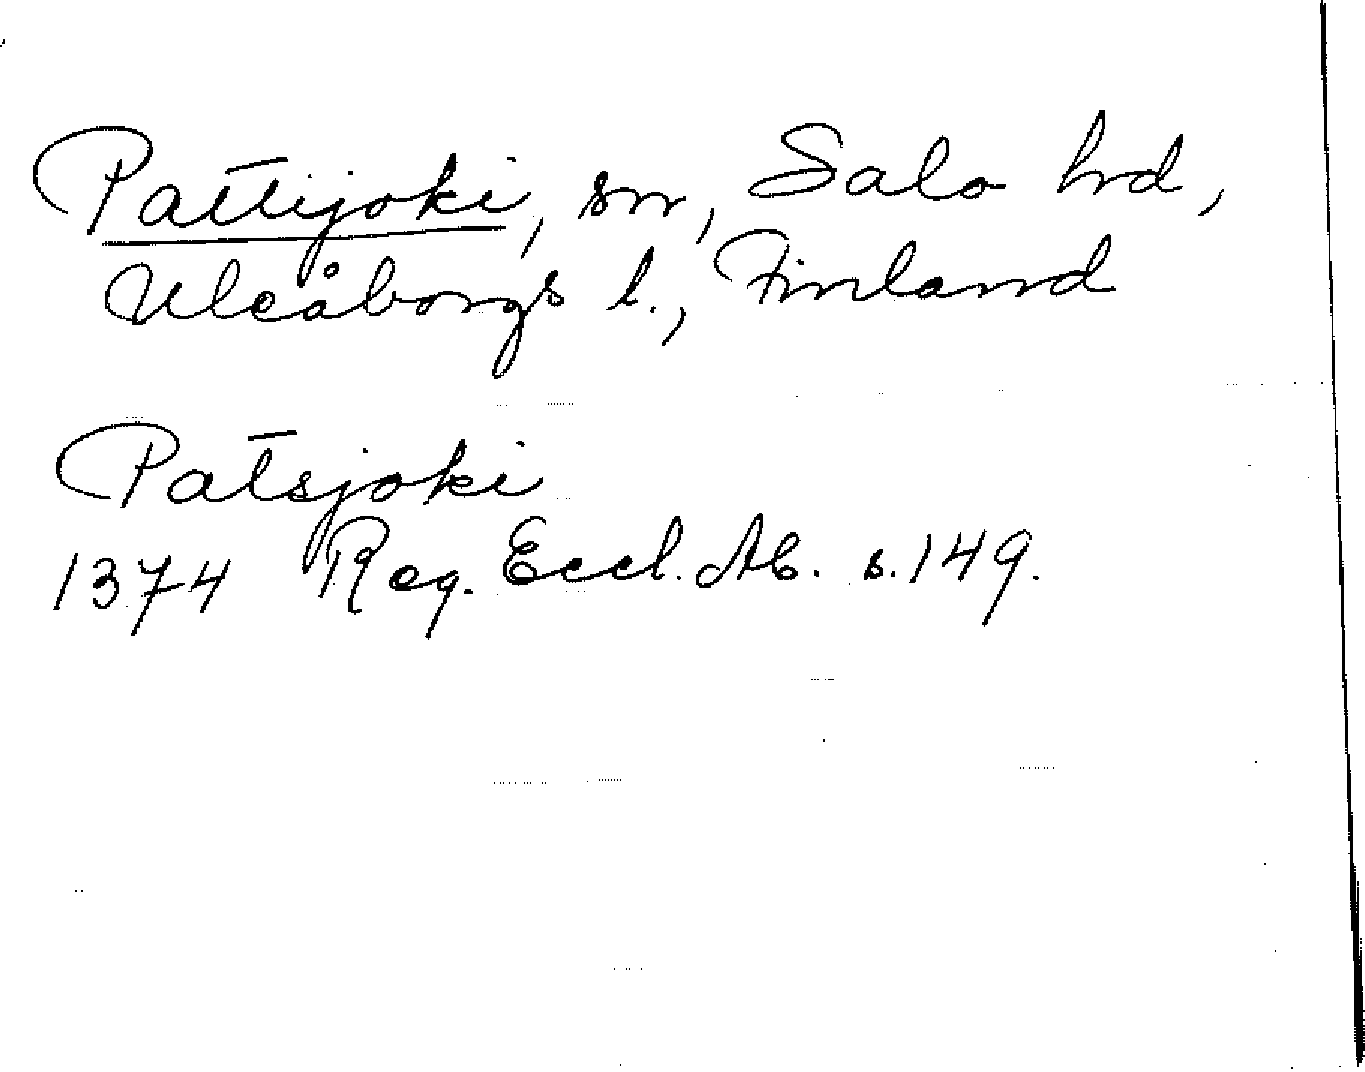 Pattijoki, sn, Salo hrd,
Uleåborgs l., Finland
Patsjoki
1374 Reg. Eccl. Ab. s. 149.